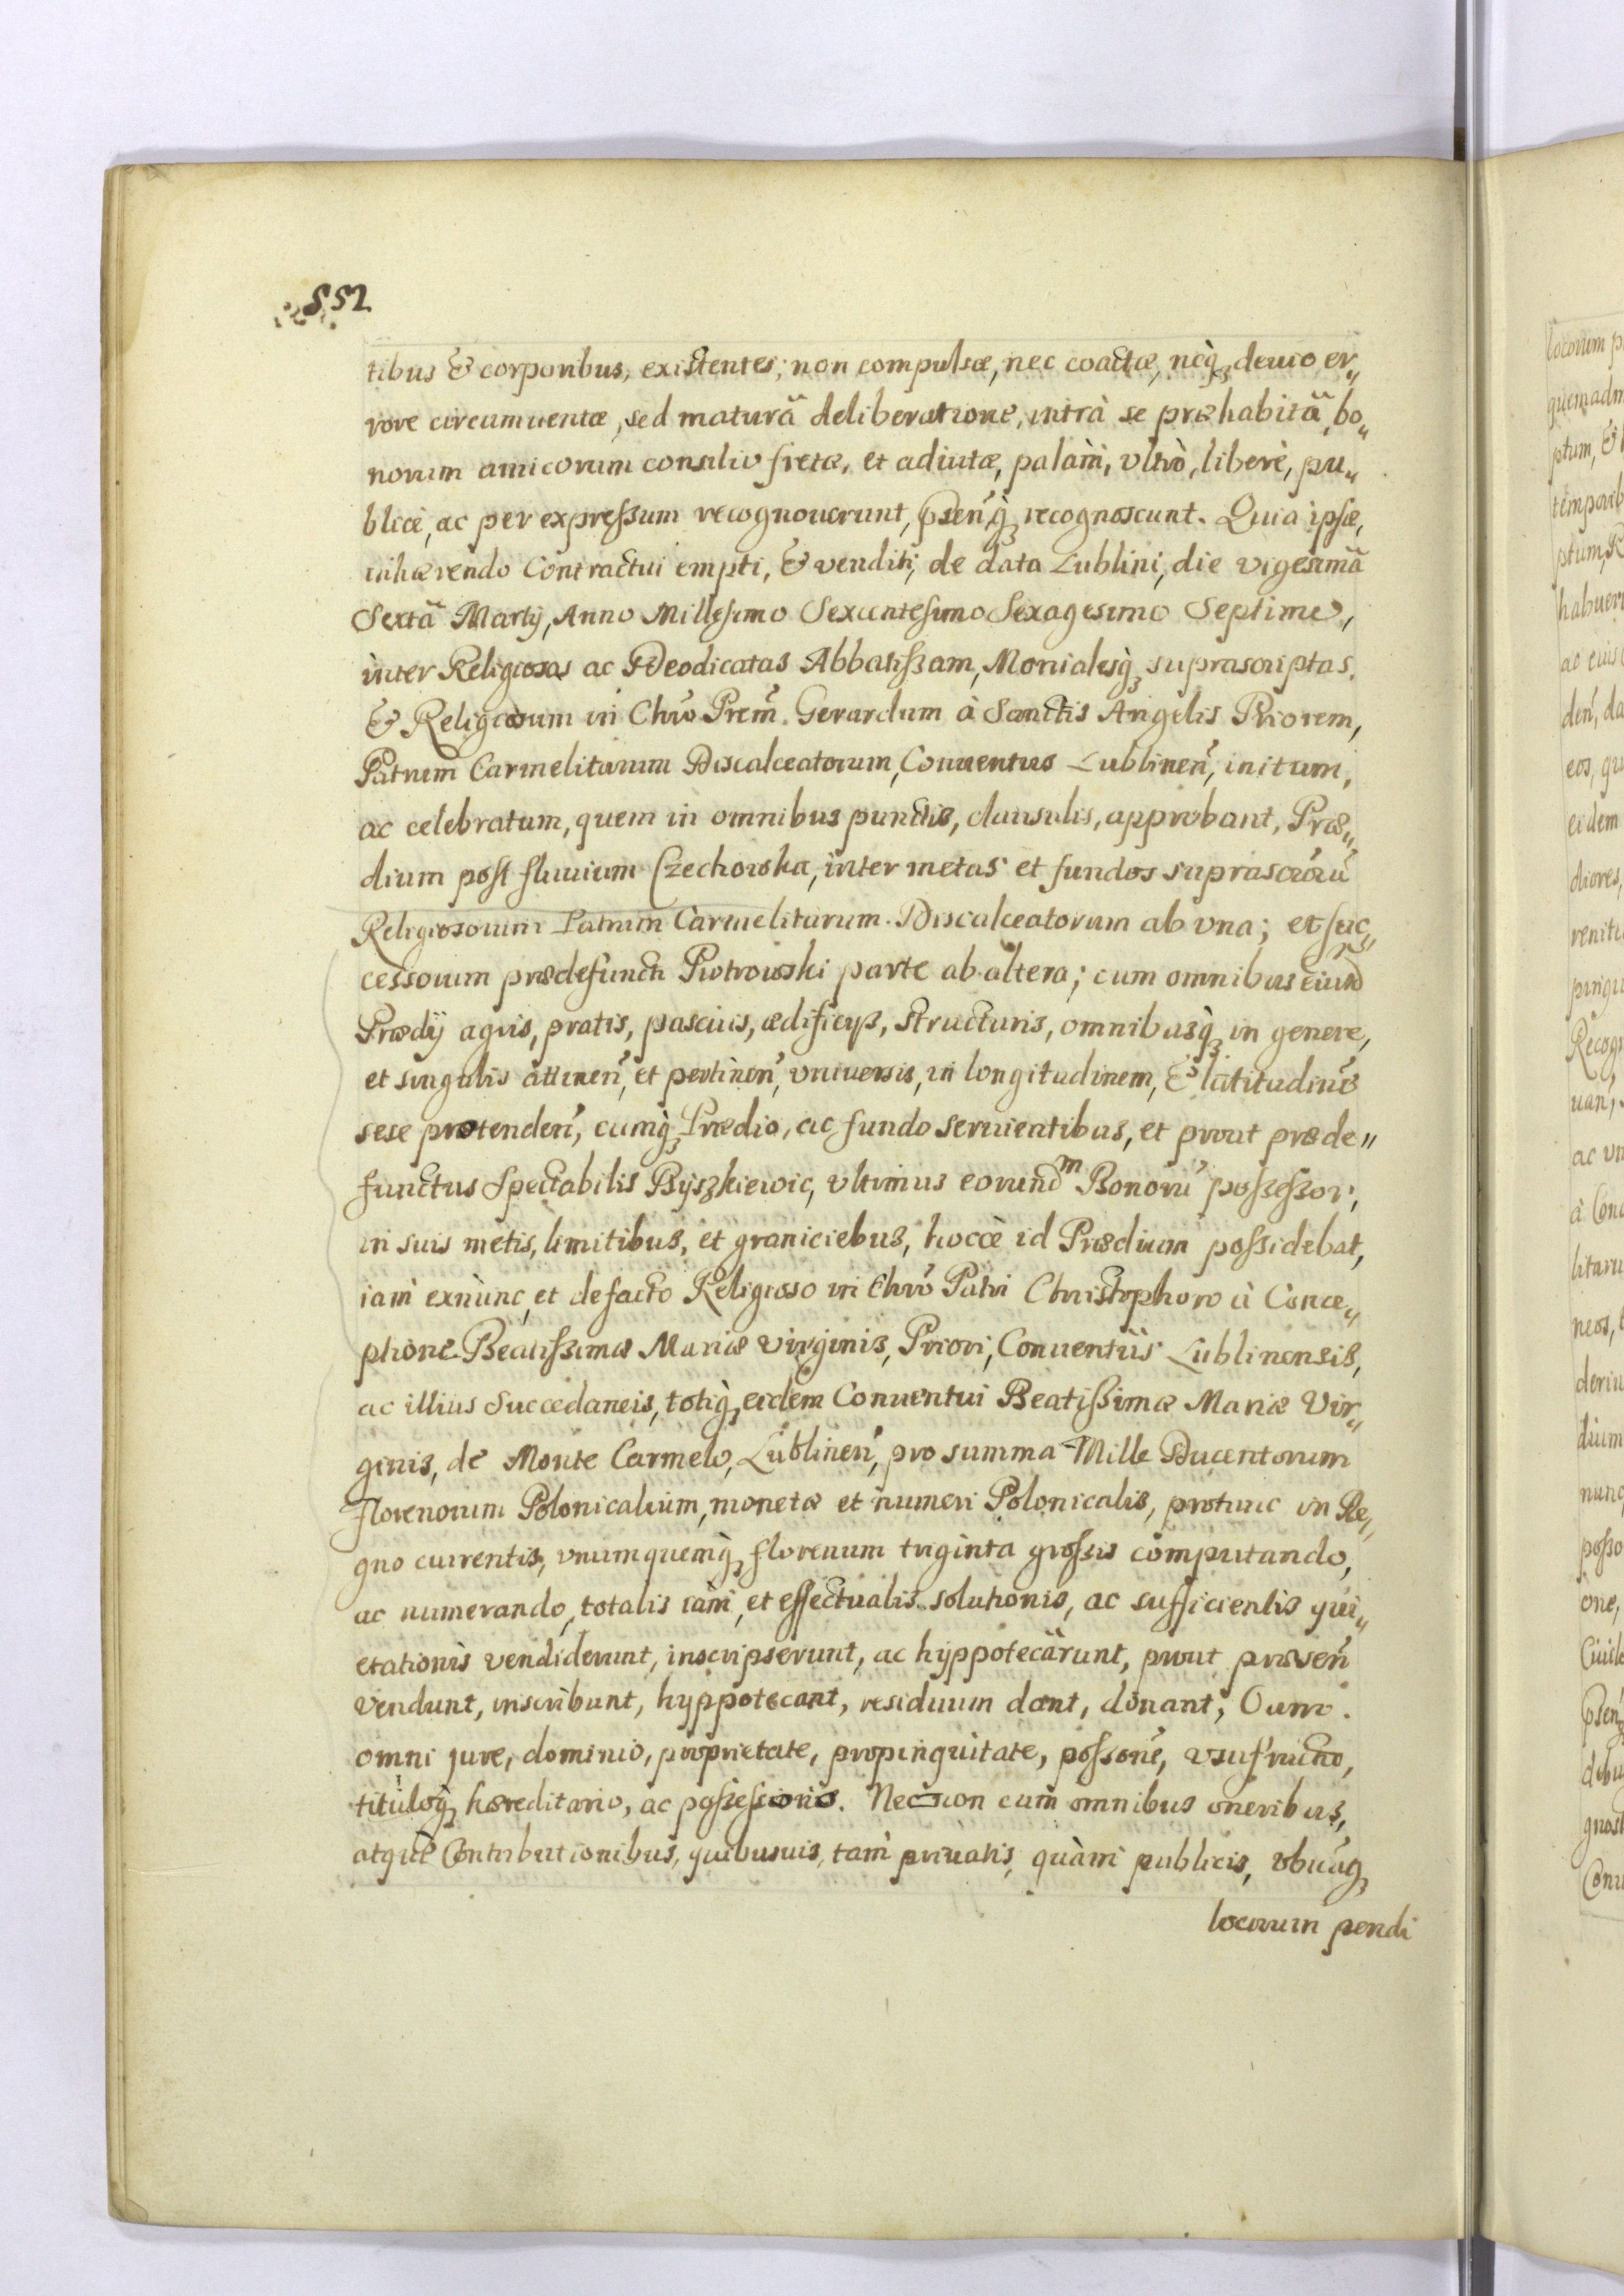 552
tibus & corporibus, existentes, non compulsæ, nec coactæ, neq₃ deuio er„
rore circumuentæ, sed maturâ deliberatione, intrà se præhabitâ, bo„
norum amicorum consilio fretæ, et adiutæ, palàm, vltrò, liberè, pu„
blicè, ac per expreßum recognouerunt, p̃senq́₃ recognoscunt. Quia ipsæ,
inhærendo Contractui empti, & venditi, de data Lublini, die vigesimâ
Sextâ Martij, Anno Millesimo Sexcentesimo Sexagesimo Septimo,
inter Religiosas ac Deodicatas Abbatißam, Monialesq́₃ suprascriptas,
& Religiosum in Chrõ Prem̃. Gerardum à Sanctis Angelis Priorem,
Patrum Carmelitarum Discalceatorum, Conuentus Lublineñ, initum,
ac celebratum, quem in omnibus punctis, clausulis, approbant, Præ„
dium post fluuium Czechowka, inter metas et fundos suprascr̃orũ
Religiosorum Patrum Carmelitarum Discalceatorum ab vna; et suc„
cessorum prædefuncti Piotrowski parte ab altera; cum omnibus eiusd
Prædij agris, pratis, pascuis, ædificijs, structuris, omnibusq́₃ in genere,
et singulis attineñ, et pertineñ, vniuersis, in longitudinem, & latitudinẽ
sese protendeñ, cumq́₃ Prædio, ac fundo seruientibus, et prout præde„
functus Spectabilis Byszkiewic, vltimus eorund͂m Bonorũ poßeßor,
in suis metis, limitibus, et graniciebus, hocce id Prædium poßidebat,
iam exnunc, et defacto Religioso in Chrõ Patri Christophoro à Conce„
ptione Beatißimæ Mariæ Virginis, Priori, Conuentûs Lublinensis,
ac illius Succedaneis, totiq́₃ eidem Conuentui Beatißimæ Mariæ Vir„
ginis, de Monte Carmelo, Lublineñ, pro summa Mille Ducentorum
Florenorum Polonicalium, monetæ et numeri Polonicalis, protunc in Re„
gno currentis, vnumquemq́₃ florenum triginta großis computando,
ac numerando, totalis iam, et effectualis solutionis, ac sufficientis qui„
etationis vendiderunt, inscripserunt, ac hyppotecârunt, prout præseñ
vendunt, inscribunt, hyppotecant, residuum dant, donant, Cum
omni jure, dominio, proprietate, propinquitate, poßonẽ, vsufructu,
titulóq₃ hæreditario, ac poßeßorio. Necnon cum omnibus oneribus,
atque Contributionibus, quibusuis, tam priuatis, quàm publicis, vbicũq₃
locorum pendi